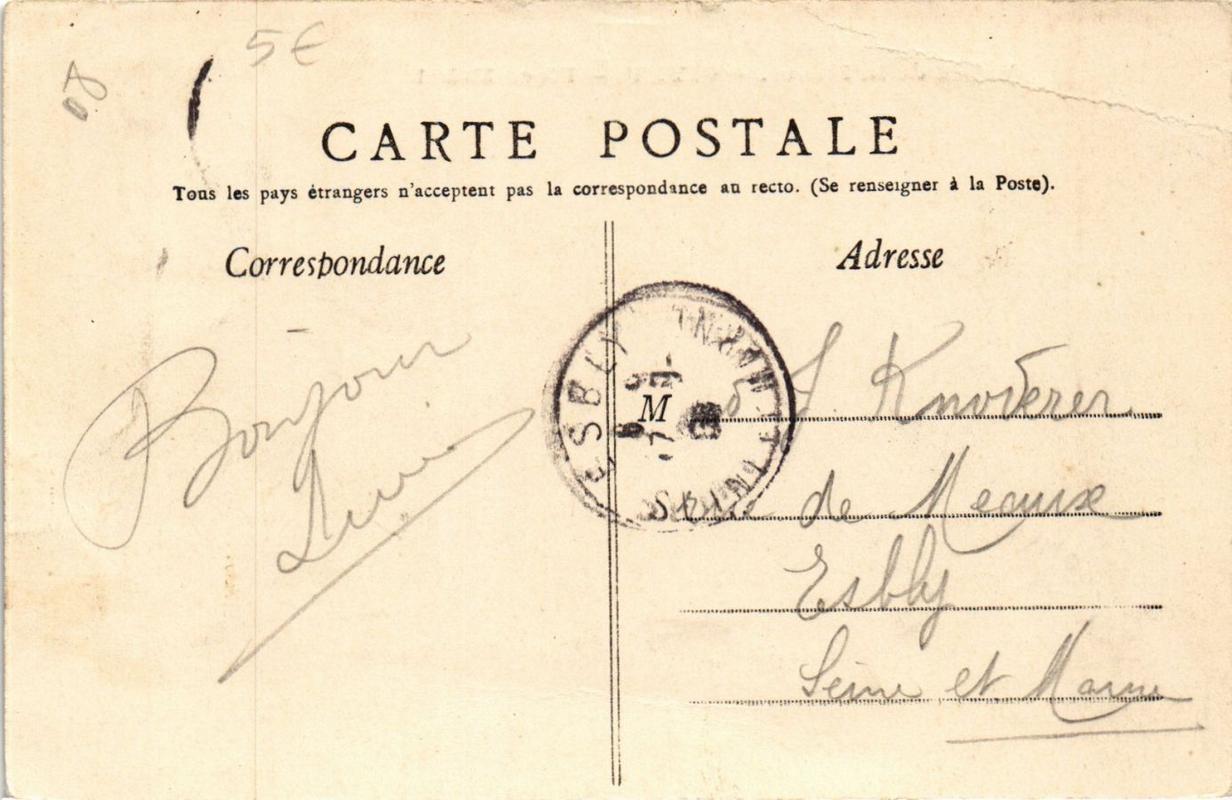 5 €
08
CARTE POSTALE
Tous les pays étrangers n'acceptent pas la correspondance au recto. (Se renseigner à la Poste).
Correspondance
Adresse
Bonjour
ESBLY
M
Knoderer
de Meaux
Esbly
Seine et Marne